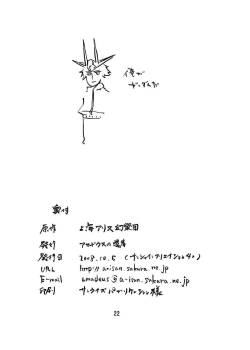 俺が
ガンダムだ
奥付
原作 上海アリス幻樂団
発行 アマデウスの遺産
発行日 2008.10.5 (サンシャインクリエイション41)
URL http://anison.sakura.ne.jp
E-mail amadeus@a-ison.sakura.ne.jp
印刷 サンライズパブリケーション様
22